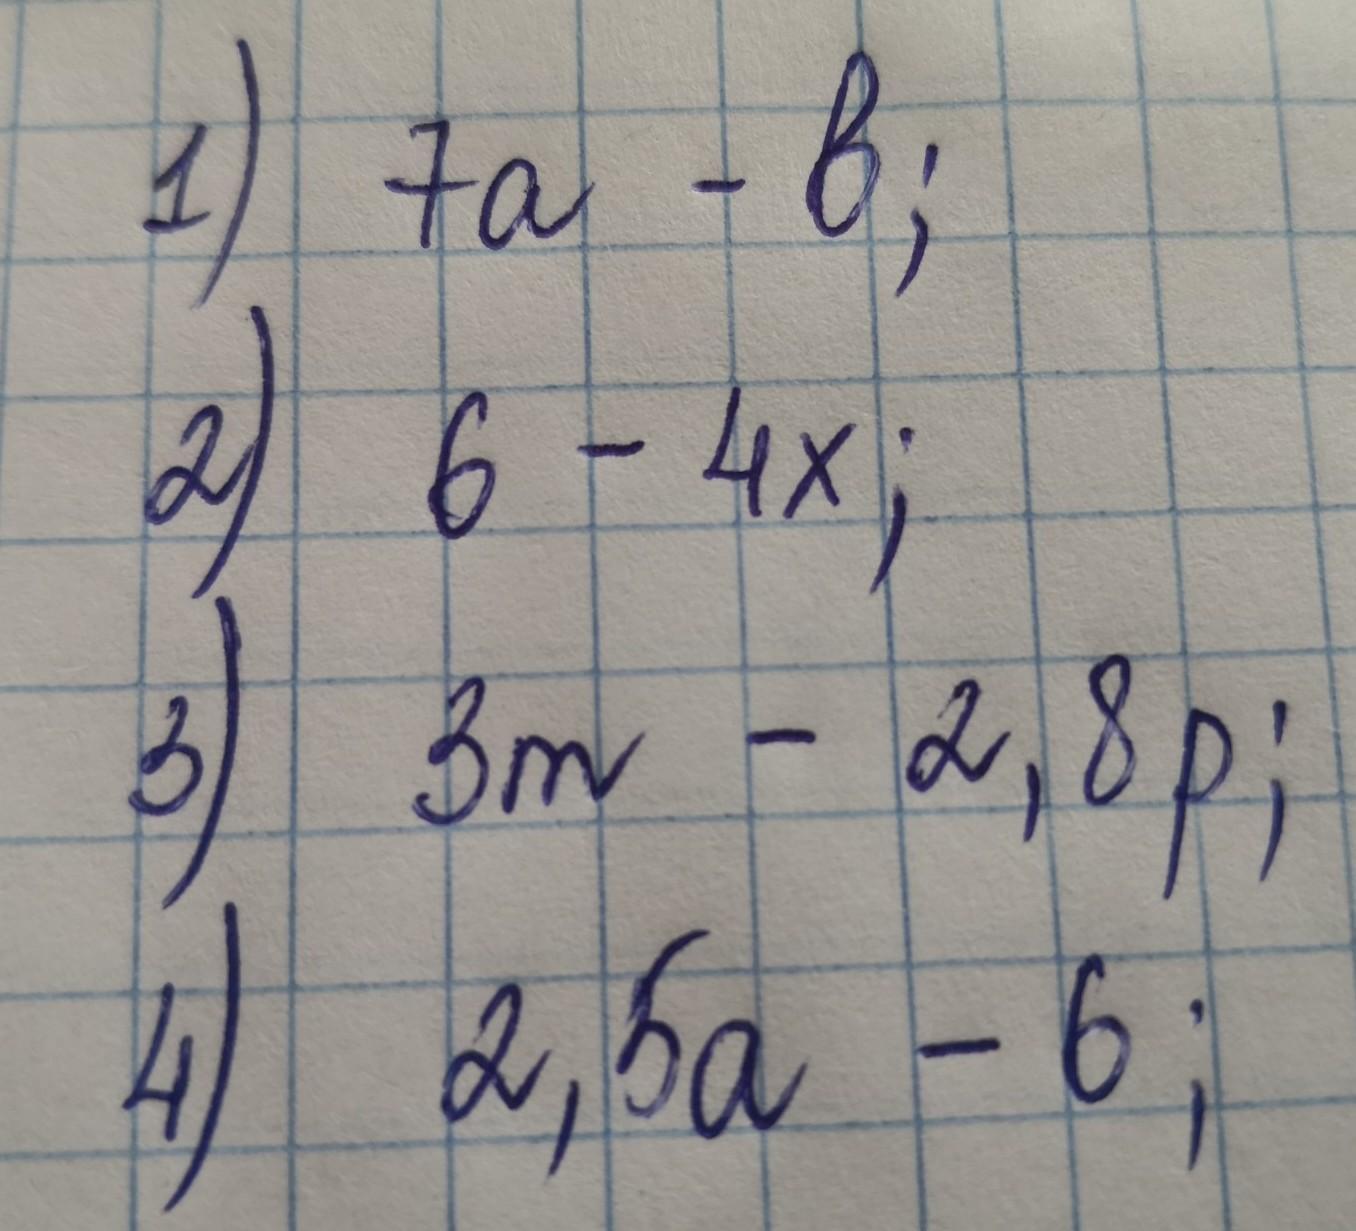 1) 7a - b;
2) 6 - 4x;
3) 3m - 2,8p;
4) 2,5a - 6;